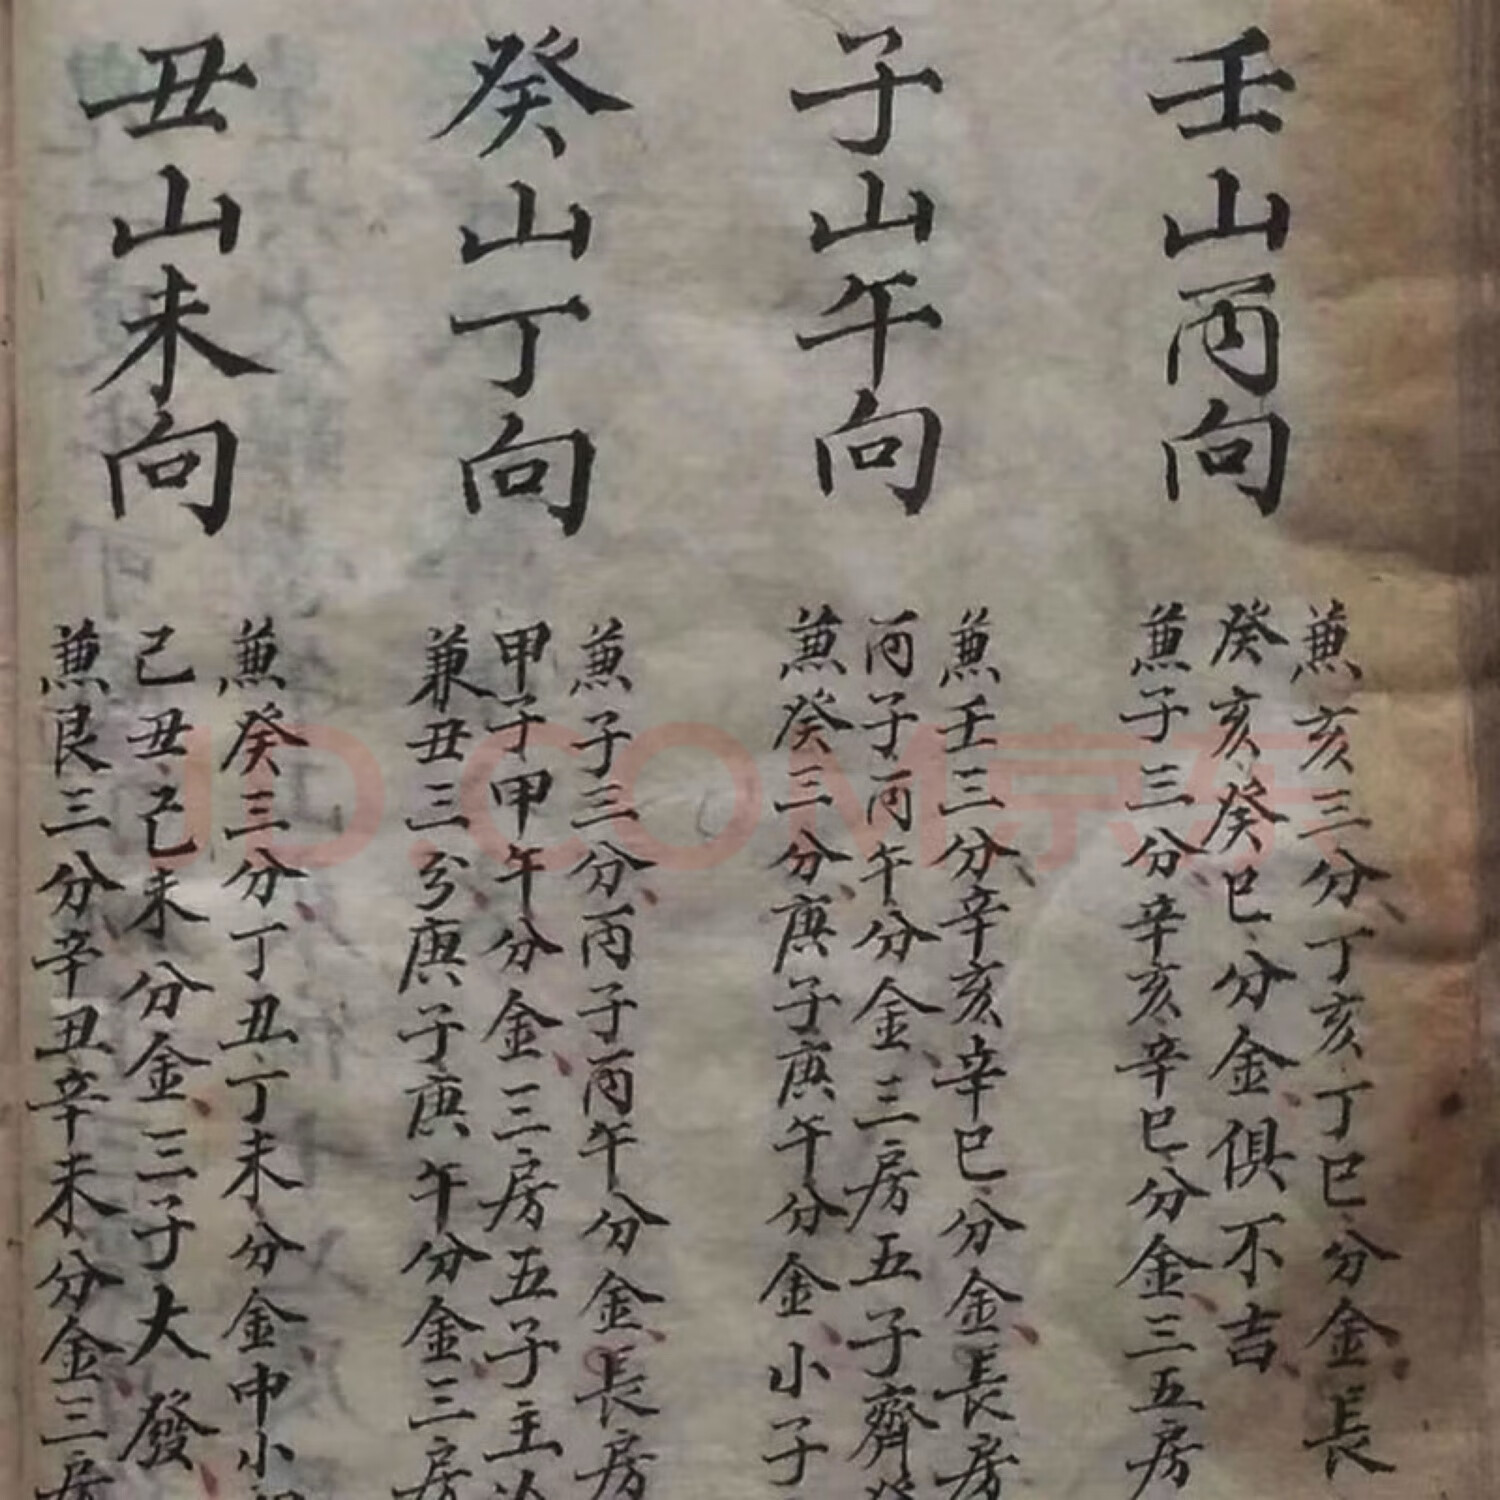 壬山丙向
兼亥三分丁亥丁巳分金長
癸亥癸巳分金俱不吉
兼子三分辛亥辛巳分金三五房
子山午向
兼壬三分辛亥辛巳分金長房
丙子丙午分金三房五子齊發
兼癸三分庚子庚午分金小子
癸山丁向
兼子三分丙子丙午分金長房
甲子甲午分金三房五子主
兼丑三分庚子庚午分金三房
丑山未向
兼癸三分丁丑丁未分金中小
己丑己未分金三子大發
兼艮三分辛丑辛未分金三房
JD.COM京东